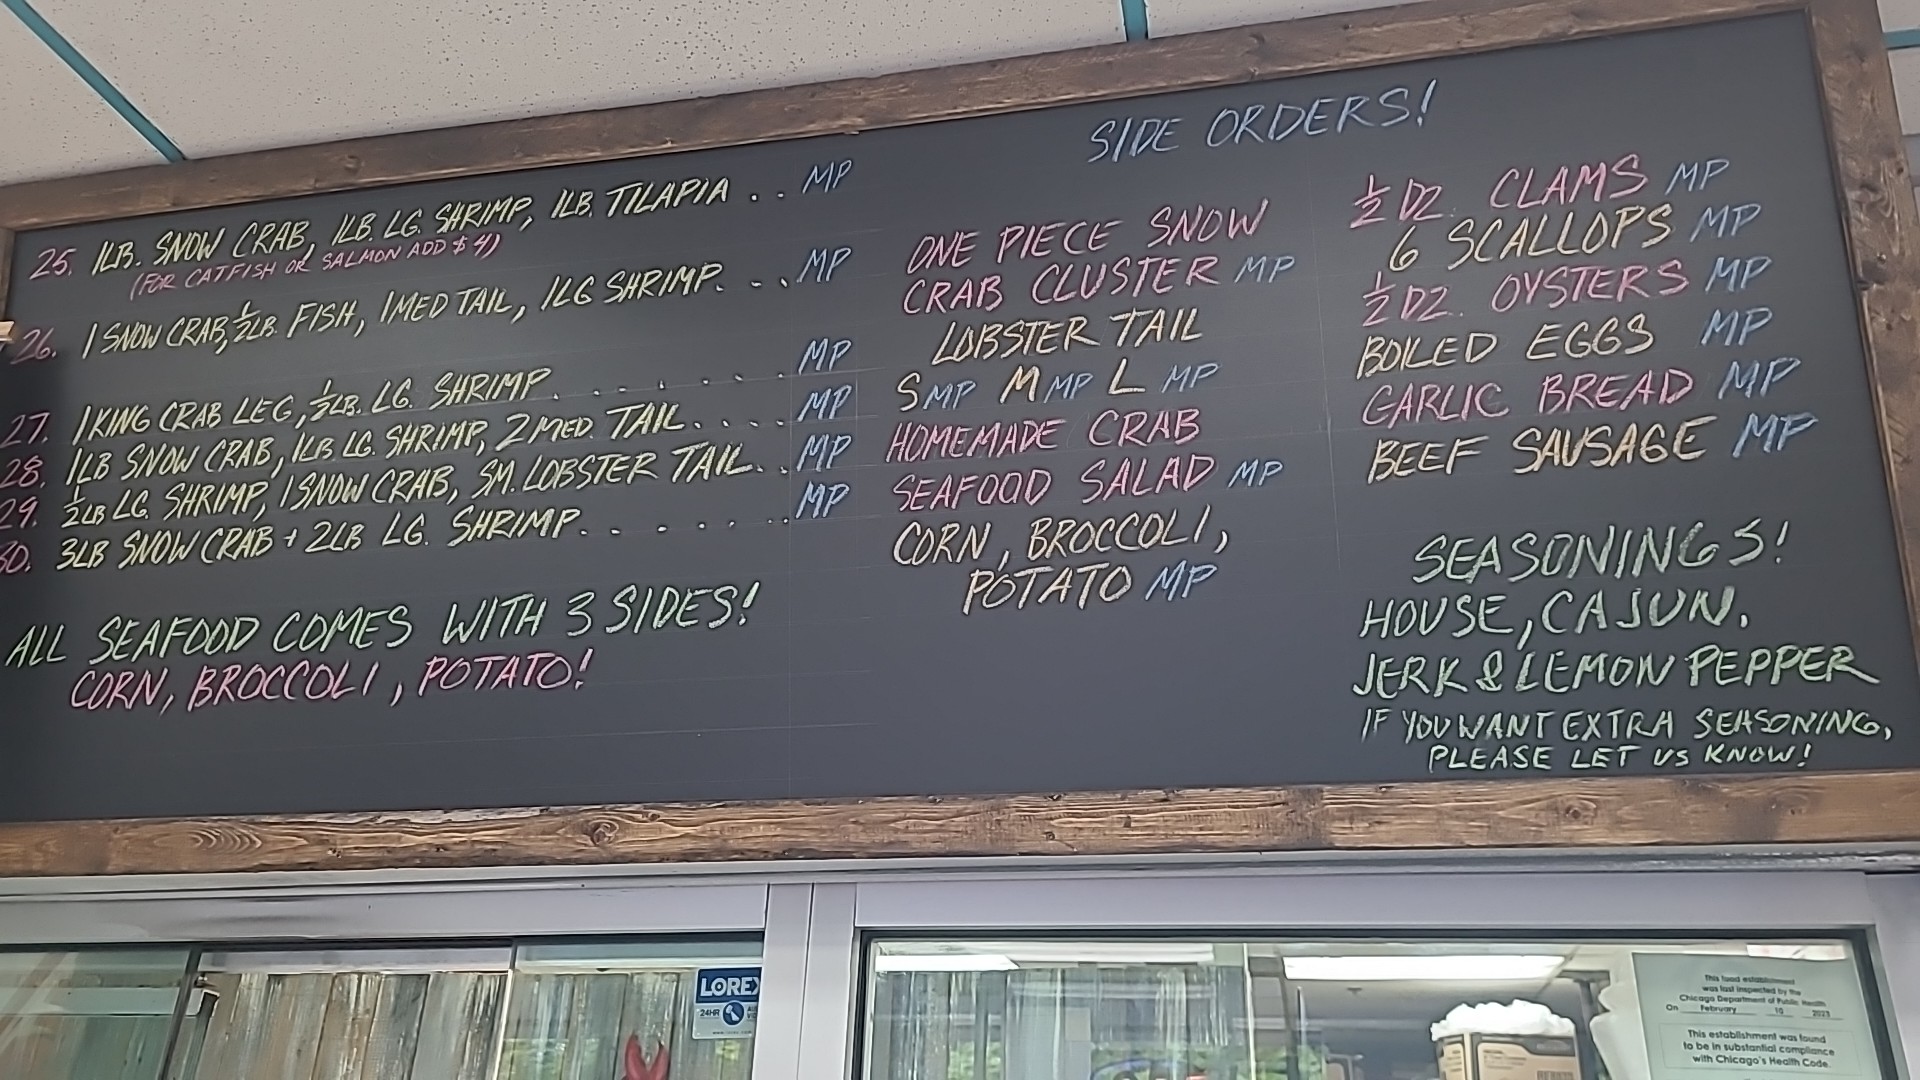 25. 1LB. SNOW CRAB, 1LB. LG. SHRIMP, 1LB. TILAPIA . . MP
(FOR CATFISH OR SALMON ADD $4)
26. 1 SNOW CRAB, ½ LB. FISH, 1 MED TAIL, 1 LG SHRIMP. . . . MP
27. 1 KING CRAB LEG, ½ LB. LG. SHRIMP. . . . . . . MP
28. 1LB SNOW CRAB, 1LB LG. SHRIMP, 2 MED. TAIL. . . . . MP
29. ½ LB LG. SHRIMP, 1 SNOW CRAB, SM. LOBSTER TAIL. . . MP
30. 3LB SNOW CRAB + 2LB LG. SHRIMP. . . . . . . . MP
ALL SEAFOOD COMES WITH 3 SIDES!
CORN, BROCCOLI, POTATO!
SIDE ORDERS!
ONE PIECE SNOW
CRAB CLUSTER MP
LOBSTER TAIL
S MP M MP L MP
HOMEMADE CRAB
SEAFOOD SALAD MP
CORN, BROCCOLI,
POTATO MP
½ DZ. CLAMS MP
6 SCALLOPS MP
½ DZ. OYSTERS MP
BOILED EGGS MP
GARLIC BREAD MP
BEEF SAUSAGE MP
SEASONINGS!
HOUSE, CAJUN.
JERK & LEMON PEPPER
IF YOU WANT EXTRA SEASONING,
PLEASE LET US KNOW!
LOREX
24HR
This food establishment
was last inspected by the
Chicago Department of Public Health
On February 10 2023
This establishment was found
to be in substantial compliance
with Chicago's Health Code.